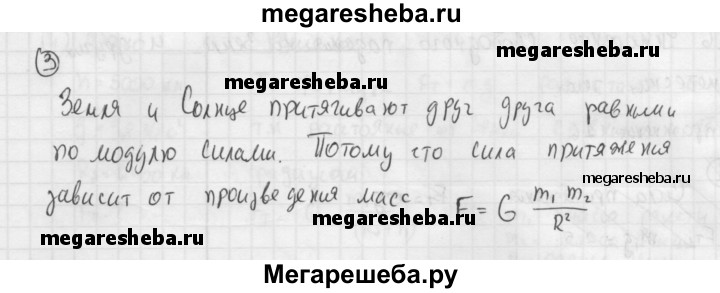 megaresheba.ru
③
megaresheba.ru
megaresheba.ru
Земля и Солнце притягивают друг друга равными
по модулю силами. Потому что сила притяжения
megaresheba.ru
зависит от произведения масс F = G m₁ m₂ / R²
megaresheba.ru
Мегарешеба.ру